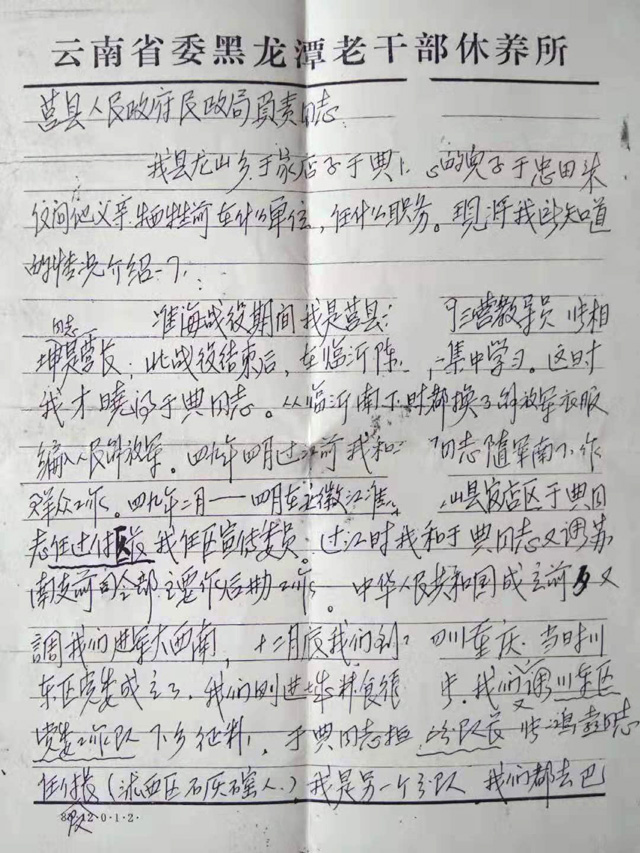 云南省委黑龙潭老干部休养所
莒县人民政府民政局负责同志：
我县龙山乡于家店子于典 的儿子于忠田来
仅问他父亲牺牲前在什么单位，任什么职务。现将我所知道
的情况介绍一下：
淮海战役期间我是莒县 营教导员
同志
是营长；此战役结束后，在临沂 集中学习。这时
我才晓得于典同志。从临沂南下时都换了解放军衣服
编入人民解放军。四九年四月过江前我和 同志随军南下作
群众工作。四九年二月——四月在 江淮 山县 店区于典同
志任 我任区宣传委员。过江时我和于典同志又调苏
南支前司令部主要作后勤工作。中华人民共和国成立前 又
調我们进军大西南，十二月底我们到 四川重庆。当时川
东区党委成立了，我们则进 我们又调川东区
党委工作队下乡征料，于典同志担 分队长 同志
任 （ 西区石灰 人）我是另一个分队 我们都去巴
8 12·0·1·2·